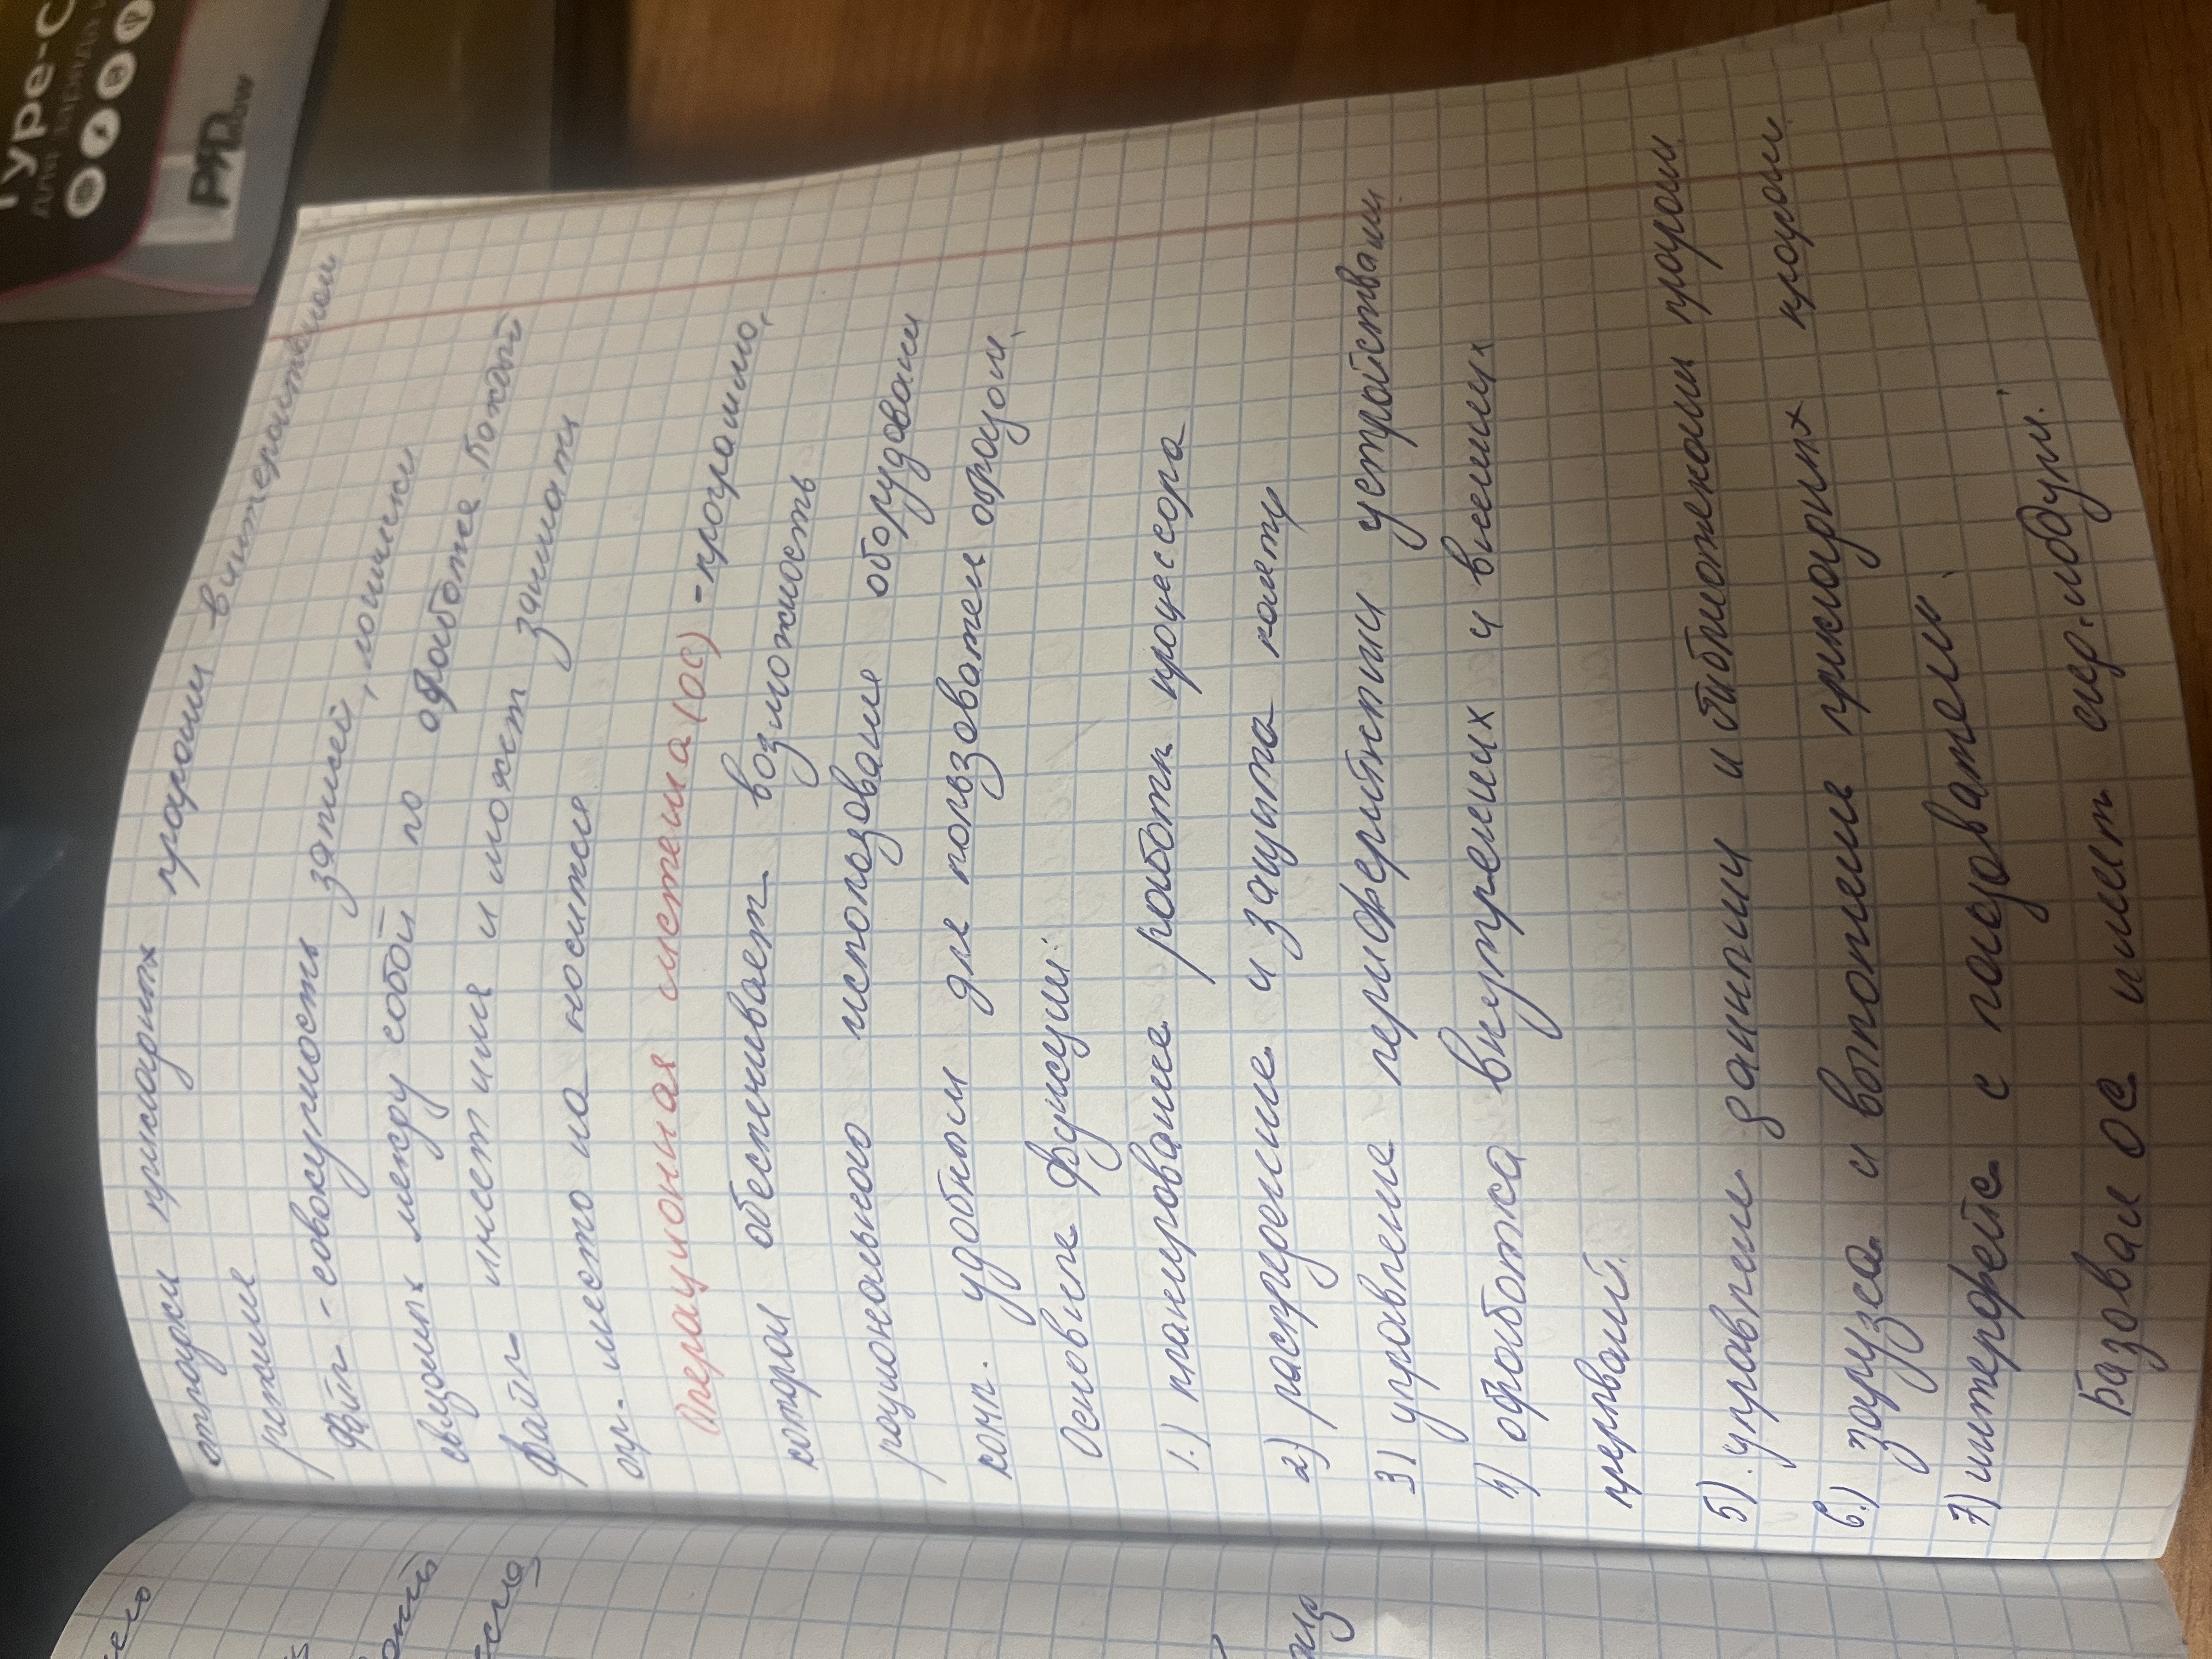 отладки прикладных програм в интерактивном
режиме
Файл - совокупность записей, логически
связаных между собой по обработке. Каждый
файл имеет имя и может занимать
опр. место на носителе
Операционная система (ОС) - программа,
которая обеспечивает возможность
рационального использование оборудован
комп. удобным для пользователя образом.
Основные функции:
1.) планирование работы процессора
2) распределение и защита памяти
3) управление периферийными устройствами
4) обработка внутрених и внешних
прерываний.
5). управлени данными и библиотеками програм
6.) загрузка и выполнение прикладных програм
7) интерфейс с пользователем.
Базовая ОС имеет модули.
Type-C
для заряда
PRO